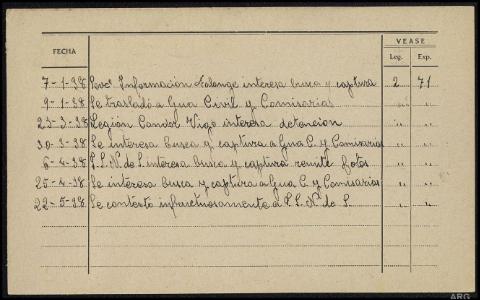 VEASE
FECHA
Leg. Exp.
7-1-38 Informacion Falange interesa busca y captura 2 71
9-1-38 Se trasladó a Gua Civil y Comisarias " "
23-3-38 Legión Condor Vigo interesa detencion " "
30-3-38 Se interesa busca y captura a Gua C. y Comisarios " "
6-4-38 S. N. de S. interesa busca y captura remite fotos " "
25-4-38 Se interesa busca y captura a Gua C. y Comisarios " "
22-5-38 Se contesto infructuosamente a S. N. de S. " "
ARG